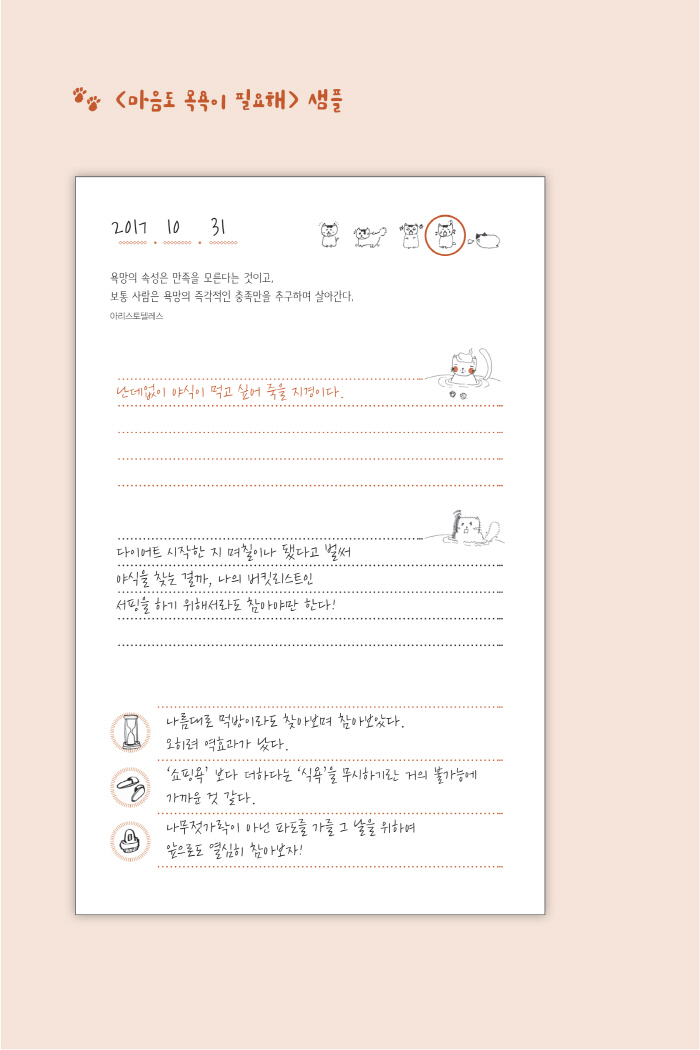 <마음도 목욕이 필요해> 샘플
2017 10 31
욕망의 속성은 만족을 모른다는 것이고,
보통 사람은 욕망의 즉각적인 충족만을 추구하며 살아간다.
아리스토텔레스
난데없이 야식이 먹고 싶어 죽을 지경이다.
다이어트 시작한 지 며칠이나 됐다고 벌써
야식을 찾는 걸까, 나의 버킷리스트인
서핑을 하기 위해서라도 참아야만 한다!
나름대로 먹방이라도 찾아보며 참아보았다.
오히려 역효과가 났다.
‘쇼핑욕’ 보다 더하다는 ‘식욕’을 무시하기란 거의 불가능에
가까운 것 같다.
나무젓가락이 아닌 파도를 가를 그 날을 위하여
앞으로도 열심히 참아보자!